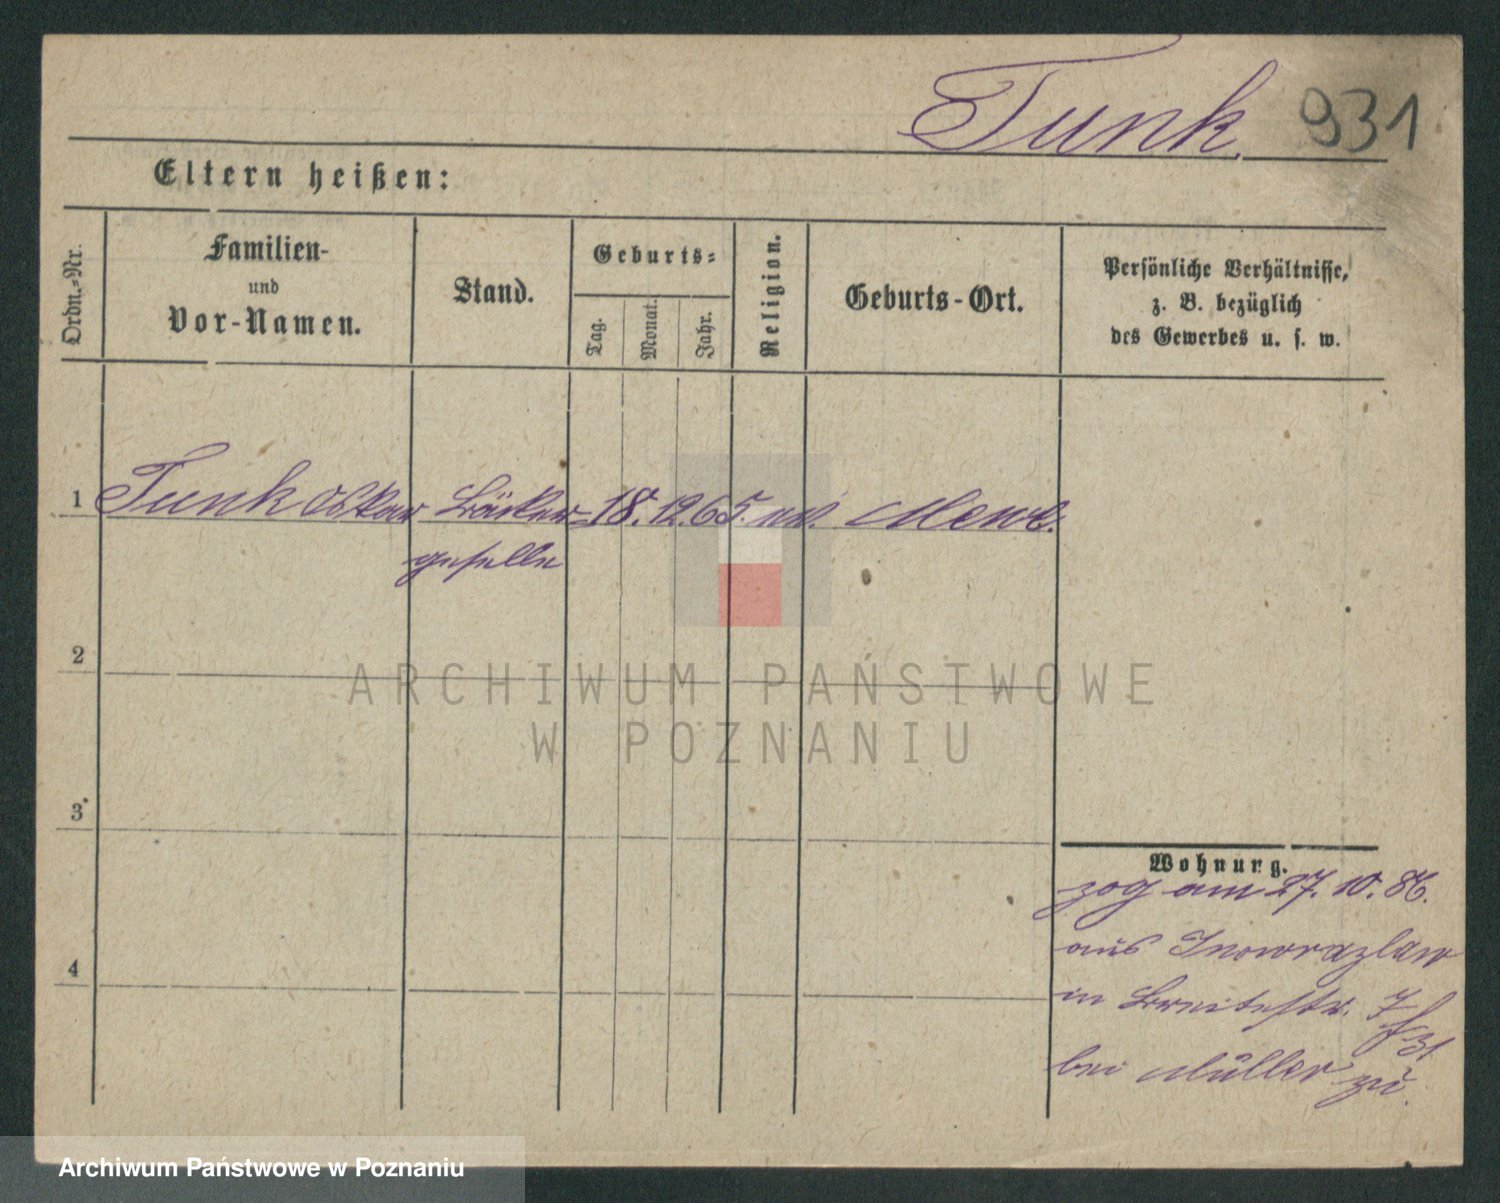 Tunk. 931
Eltern heißen:
Ordn.-Nr.
Familien-
und
Vor-Namen.
Stand.
Geburts-
Tag.
Monat.
Jahr.
Religion.
Geburts-Ort.
Persönliche Verhältnisse,
z. B. bezüglich
des Gewerbes u. s. w.
1 Tunk Oskar Bäcker- 18. 12. 65. ev.
geselle
2
3
4
Wohnung.
zog am 27. 10. 86.
aus Inowrazlaw
in Breitestr. 7
bei Müller zu.
ARCHIWUM PAŃSTWOWE
W POZNANIU
Archiwum Państwowe w Poznaniu